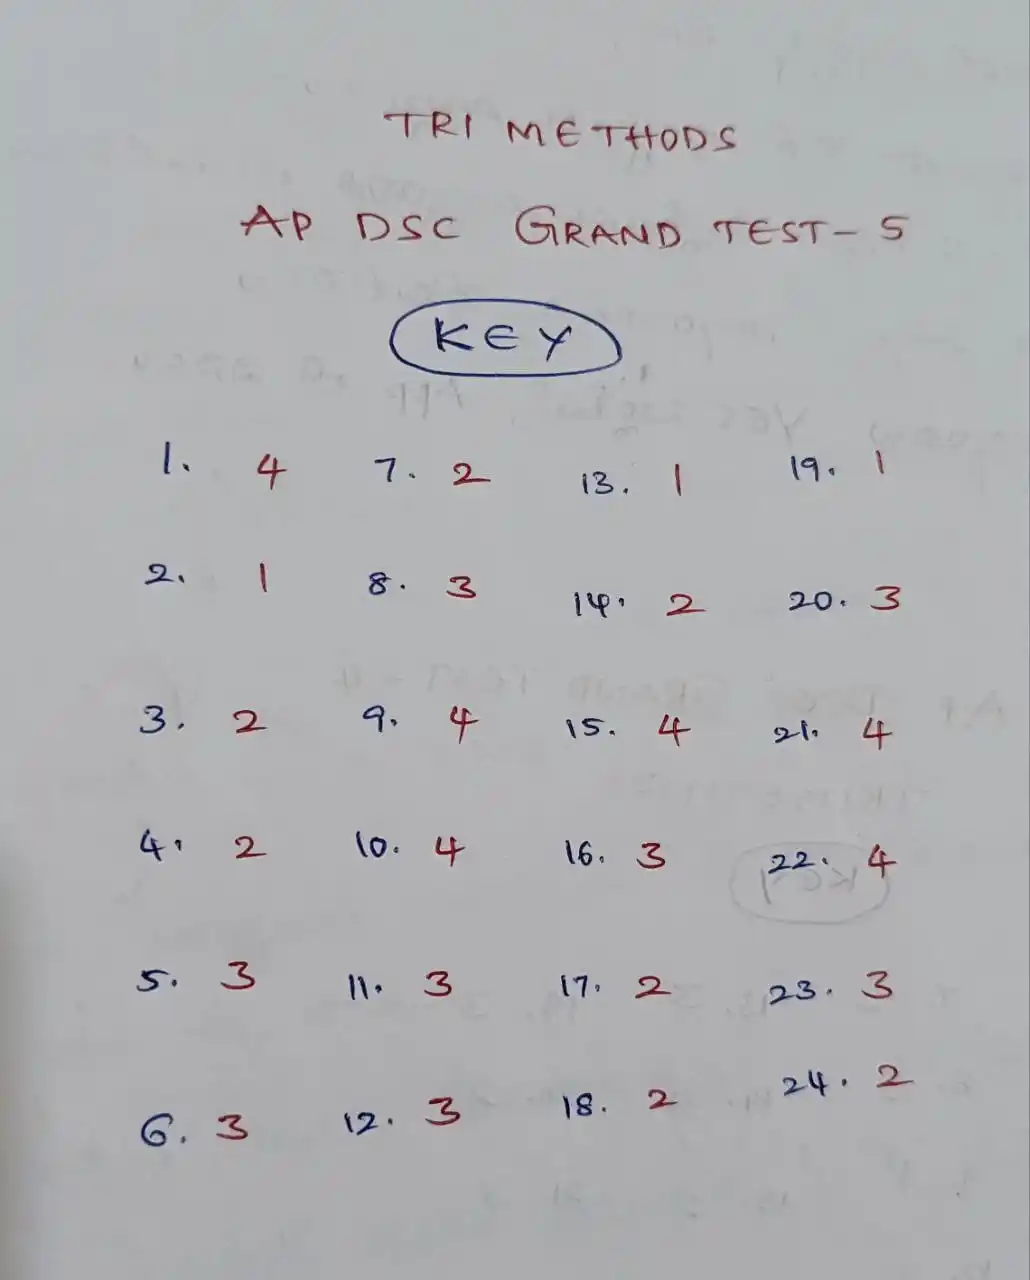 TRI METHODS
AP DSC GRAND TEST - 5
KEY
1. 4 7. 2 13. 1 19. 1
2. 1 8. 3 14. 2 20. 3
3. 2 9. 4 15. 4 21. 4
4. 2 10. 4 16. 3 22. 4
5. 3 11. 3 17. 2 23. 3
6. 3 12. 3 18. 2 24. 2